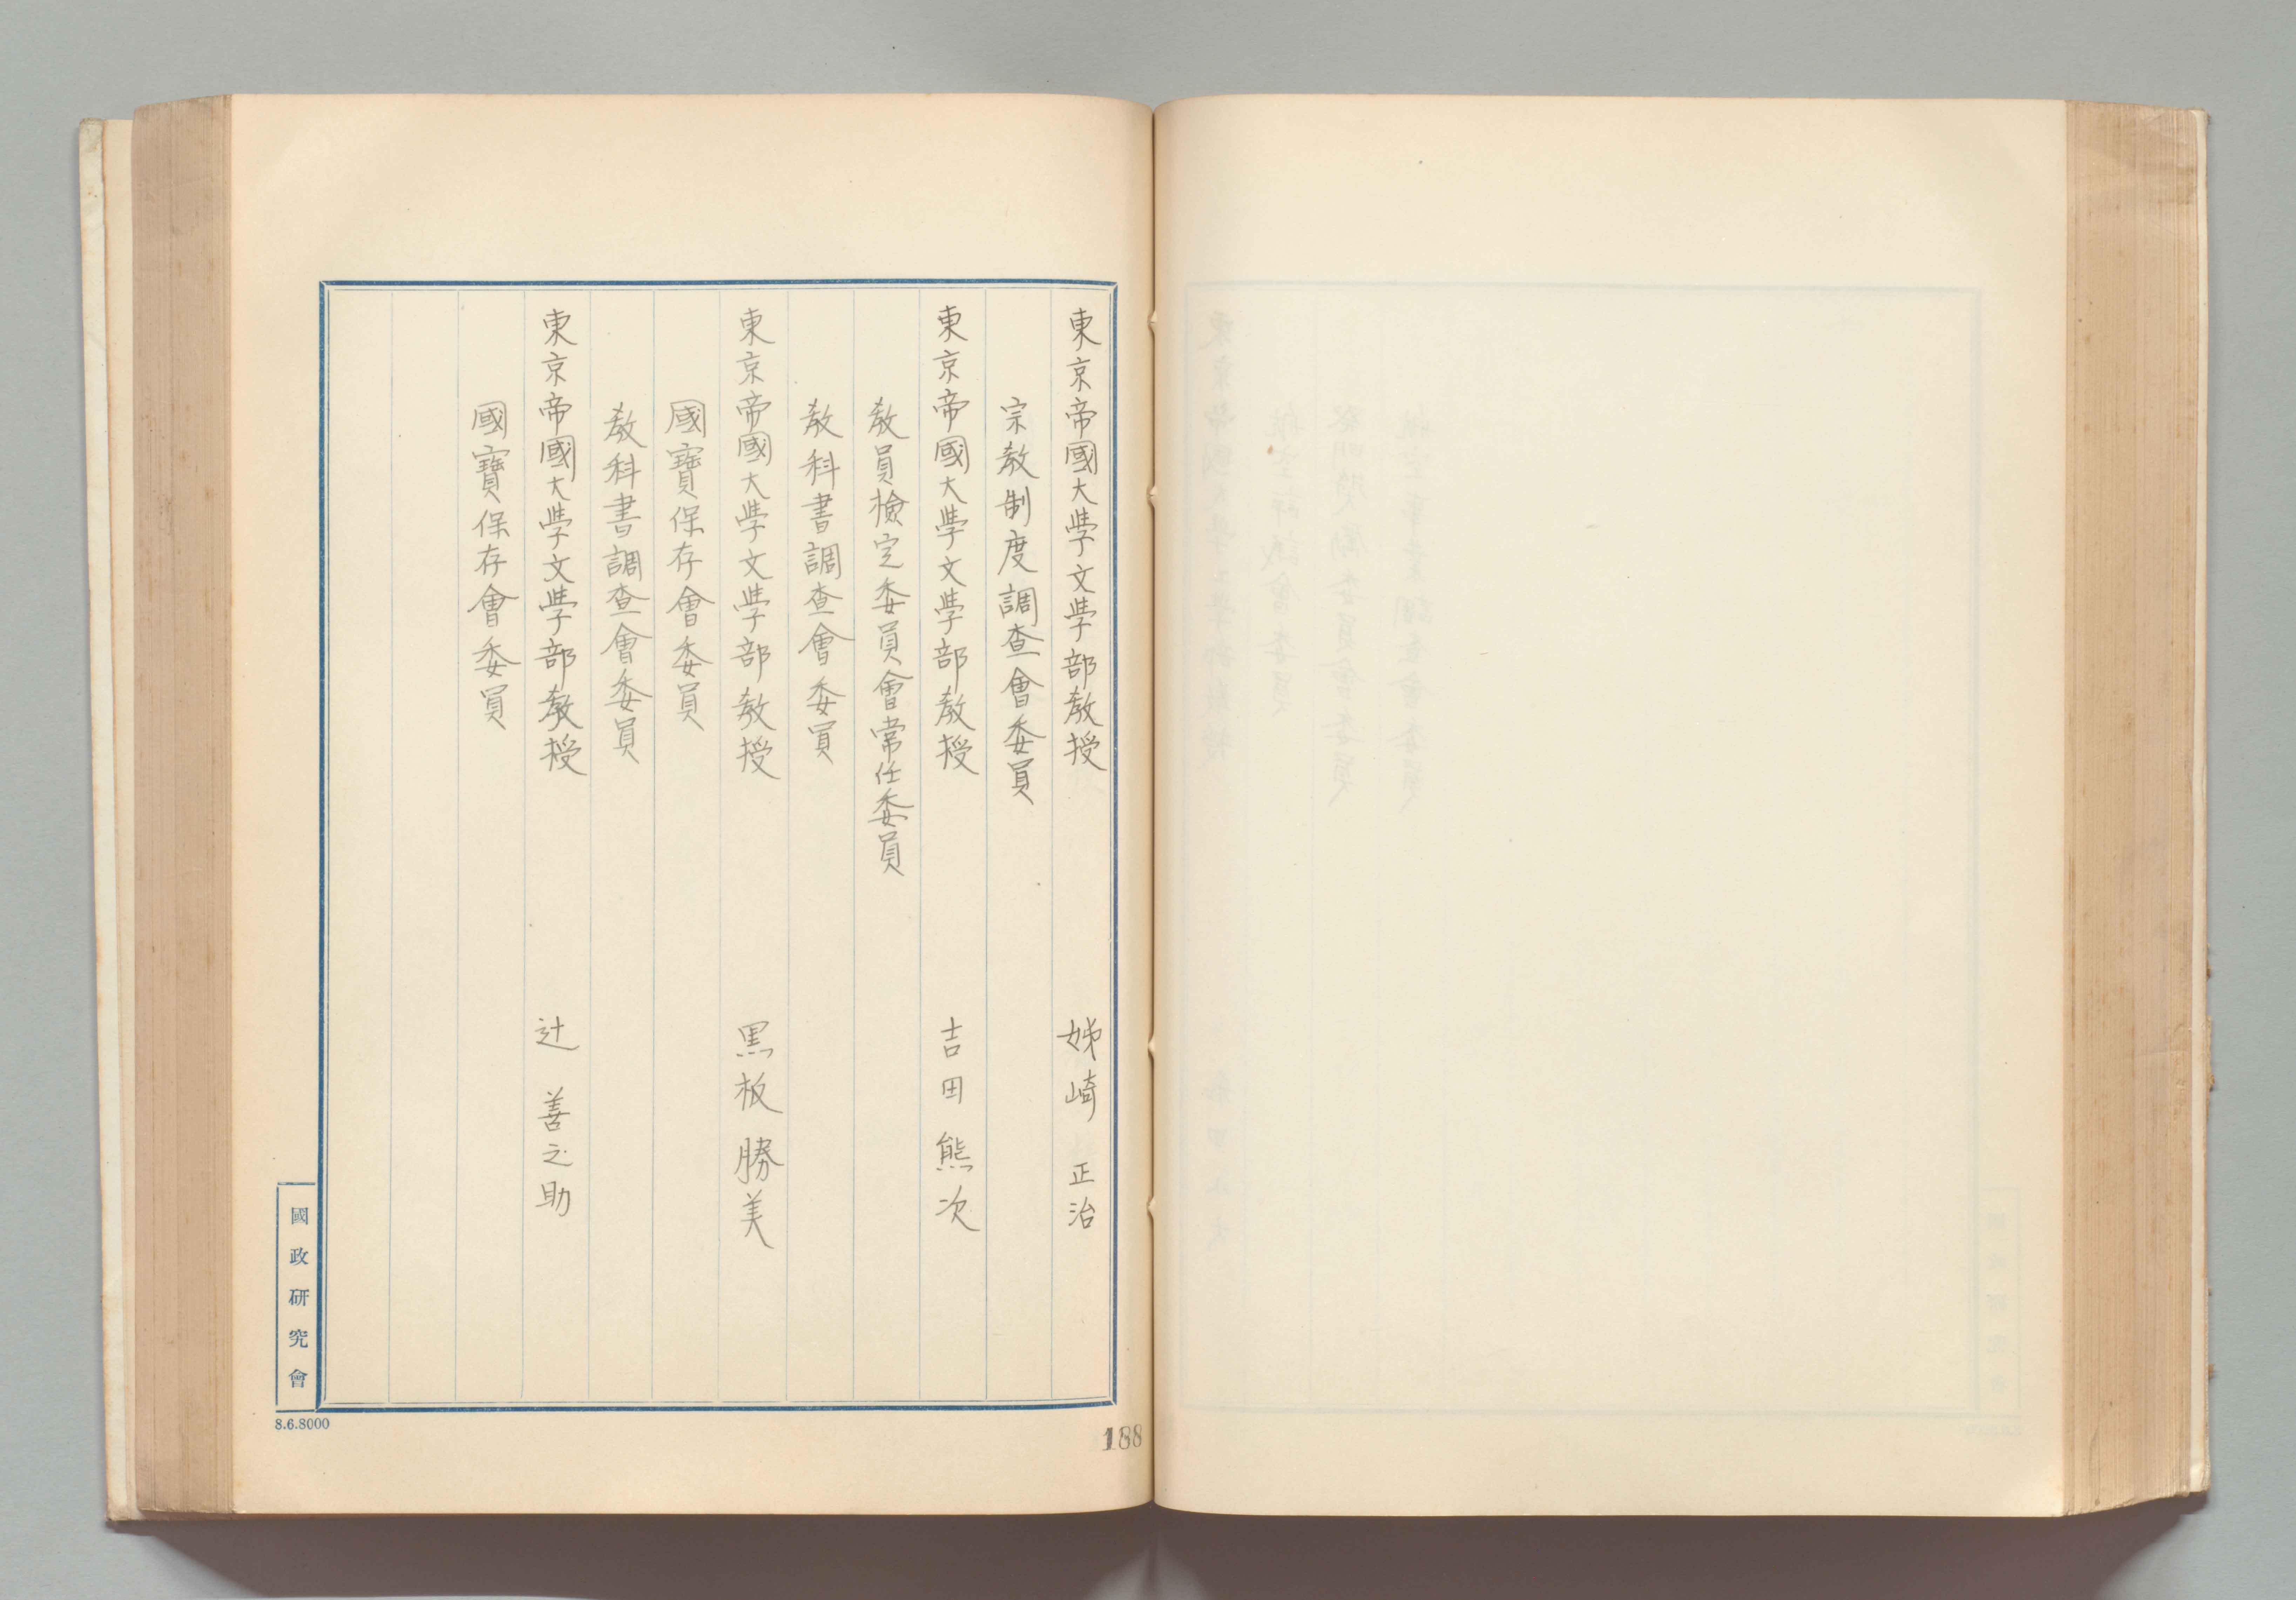 東京帝國大學文學部教授 姊崎正治
宗教制度調査會委員
東京帝國大學文學部教授 吉田熊次
教員檢定委員會常任委員
教科書調査會委員
東京帝國大學文學部教授 黒板勝美
國寶保存會委員
教科書調査會委員
東京帝國大學文學部教授 辻善之助
國寶保存會委員
國政研究會
8.6.8000
188